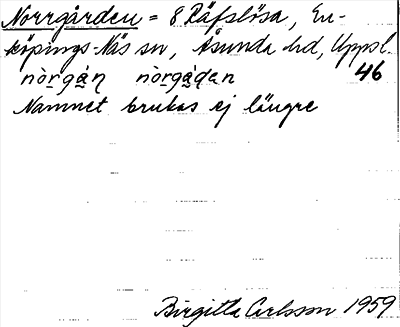 Norrgården = 8 Räfslösa, En-
köpings-Näs sn, Åsunda hd, Uppsl.
nòrgán nòrgádan 46
Namnet brukas ej längre
Birgitta Carlsson 1959